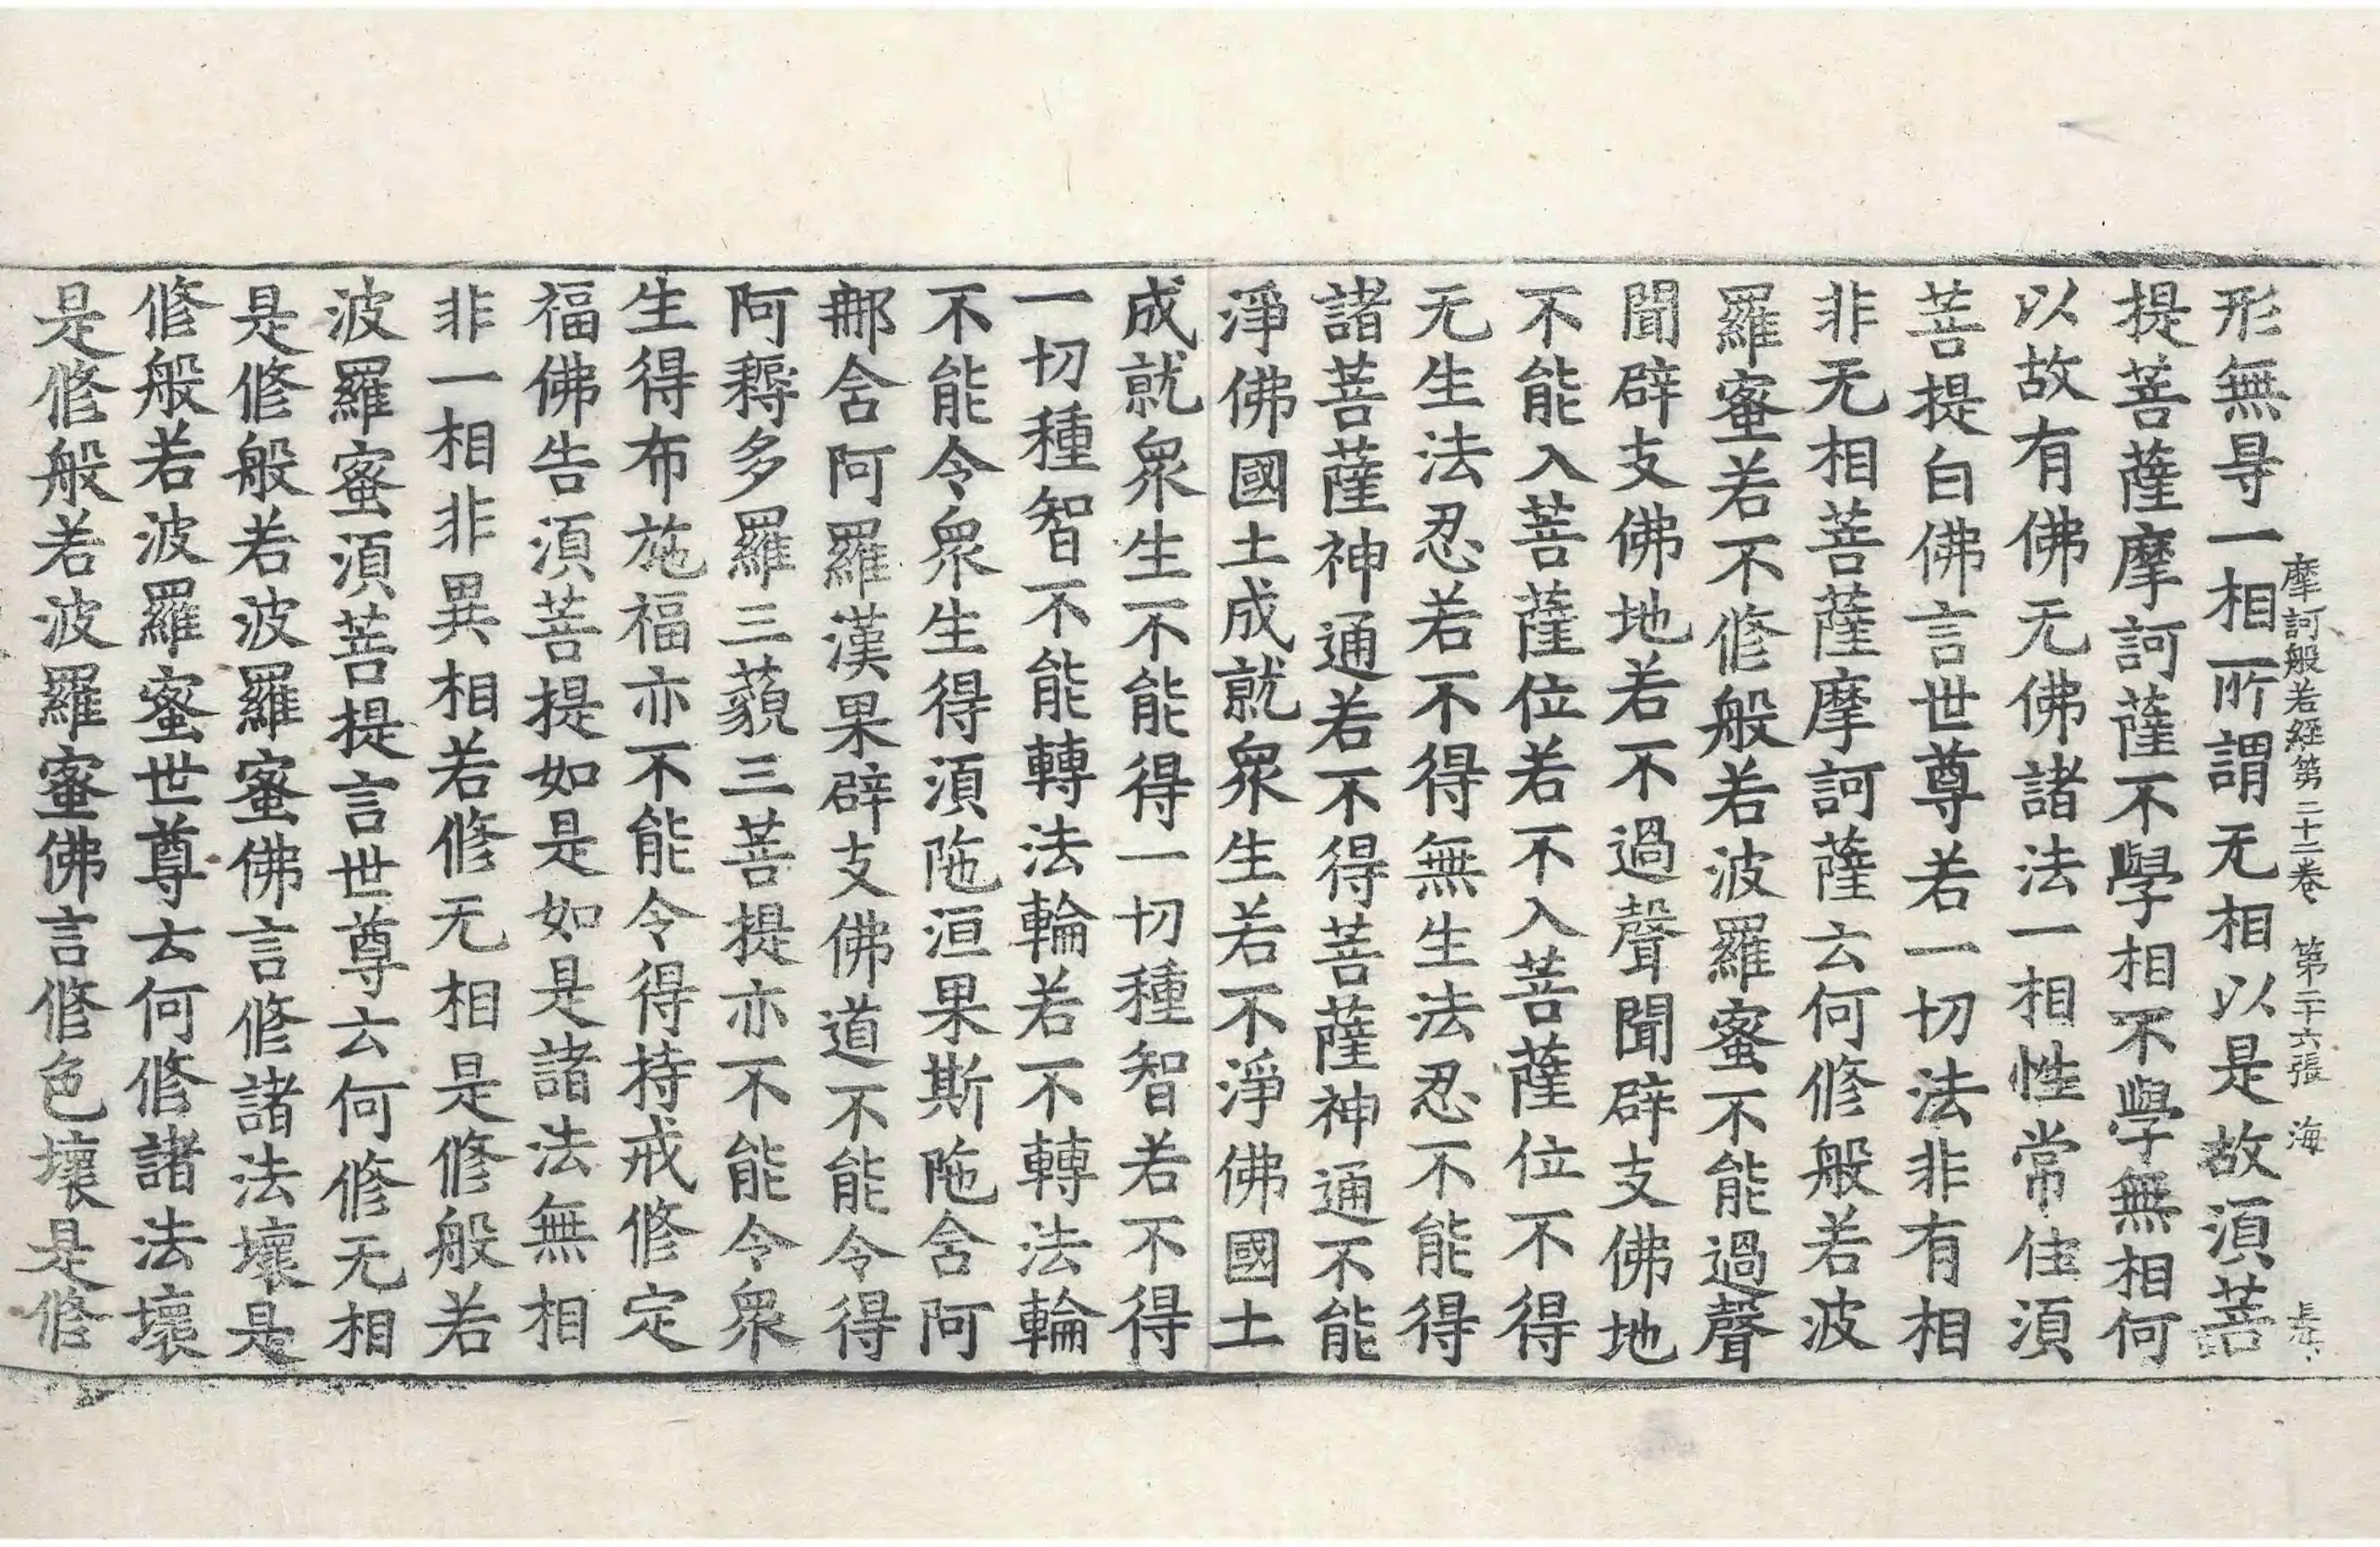 摩訶般若經第二十二卷 第二十六張 海
形無㝵一相所謂无相以是故湏菩
提菩薩摩訶薩不學相不學無相何
以故有佛无佛諸法一相性常住湏
菩提白佛言世尊若一切法非有相
非无相菩薩摩訶薩云何修般若波
羅蜜若不修般若波羅蜜不能過聲
聞辟支佛地若不過聲聞辟支佛地
不能入菩薩位若不入菩薩位不得
无生法忍若不得無生法忍不能得
諸菩薩神通若不得菩薩神通不能
淨佛國土成就衆生若不淨佛國土
成就衆生不能得一切種智若不得
一切種智不能轉法輪若不轉法輪
不能令衆生得湏陁洹果斯陁含阿
那含阿羅漢果辟支佛道不能令得
阿耨多羅三藐三菩提亦不能令衆
生得布施福亦不能令得持戒修定
福佛告湏菩提如是如是諸法無相
非一相非異相若修无相是修般若
波羅蜜湏菩提言世尊云何修无相
是修般若波羅蜜佛言修諸法壞是
修般若波羅蜜世尊云何修諸法壞
是修般若波羅蜜佛言修色壞是修